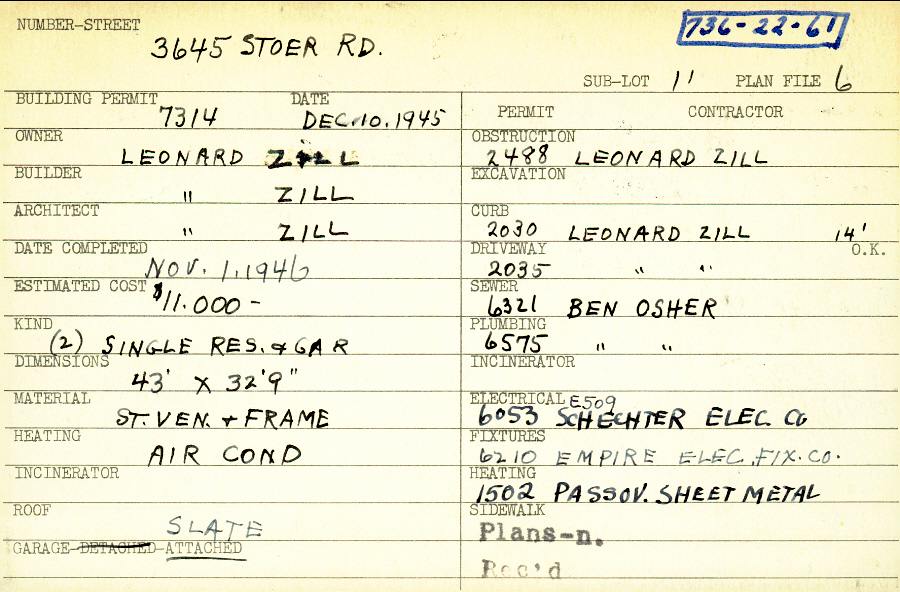 NUMBER-STREET
3645 STOER RD.
736-22-61
SUB-LOT 11 PLAN FILE 6
BUILDING PERMIT DATE
7314 DEC. 10. 1945
OWNER
LEONARD ZILL
BUILDER
" ZILL
ARCHITECT
" ZILL
DATE COMPLETED
NOV. 1, 1946
ESTIMATED COST $11.000-
KIND
(2) SINGLE RES. & GAR
DIMENSIONS
43' X 32'9"
MATERIAL
ST. VEN. + FRAME
HEATING
AIR COND
INCINERATOR
ROOF
SLATE
GARAGE-DETACHED-ATTACHED
PERMIT CONTRACTOR
OBSTRUCTION
2488 LEONARD ZILL
EXCAVATION
CURB
2030 LEONARD ZILL 14'
DRIVEWAY O.K.
2035 " "
SEWER
6321 BEN OSHER
PLUMBING
6575 " "
INCINERATOR
ELECTRICAL E509
6053 SCHECHTER ELEC. CO
FIXTURES
6210 EMPIRE ELEC. FIX. CO.
HEATING
1502 PASSOV. SHEET METAL
SIDEWALK
Plans-n.
Rec'd